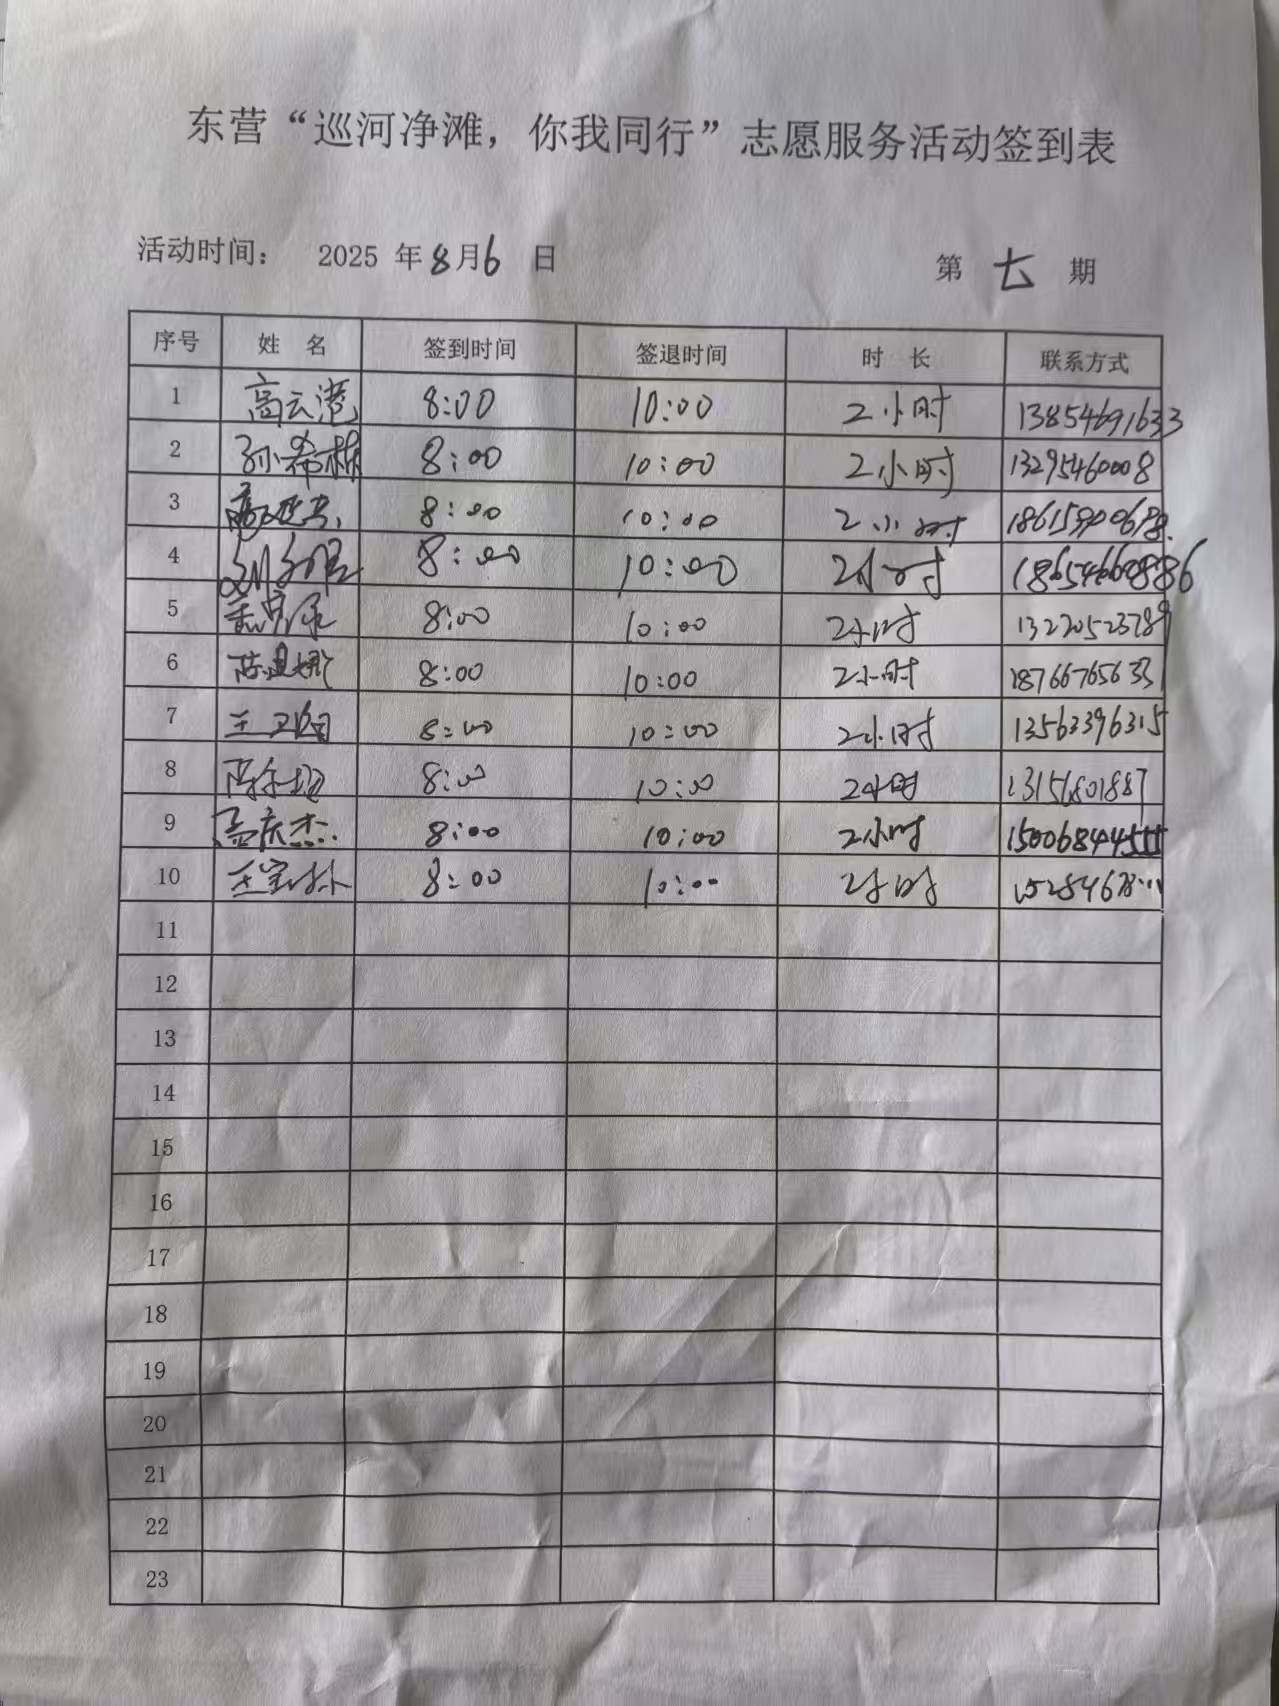 东营“巡河净滩，你我同行”志愿服务活动签到表
活动时间： 2025 年 8 月 6 日 第 七 期
序号 姓 名 签到时间 签退时间 时 长 联系方式
1 高云港 8:00 10:00 2小时 13854691633
2 孙希栋 8:00 10:00 2小时 13295460008
3 8:00 10:00 2小时
4 8:00 10:00 2小时
5 8:00 10:00 2小时 13220523789
6 8:00 10:00 2小时 18766765633
7 王卫国 8:00 10:00 2小时 13563396315
8 8:00 10:00 2小时 13156801887
9 孟庆杰 8:00 10:00 2小时 15006844555
10 王宝林 8:00 10:00 2小时
11
12
13
14
15
16
17
18
19
20
21
22
23